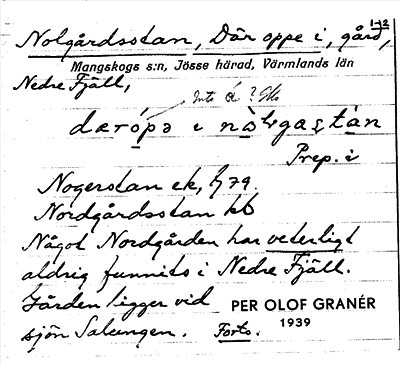 1-2
Nolgårdsstan, Där oppe i, gård,
Mangskogs s:n, Jösse härad, Värmlands län
Nedre Fjäll,
Inte å?
dærópə ı nòlgaştàn
Prep. i
Nogerstan ek, h 79.
Nordgårdsstan kb
Något Nordgården har veterligt
aldrig funnits i Nedre Fjäll.
Gården ligger vid
sjön Salungen. Forts.
PER OLOF GRANÉR
1939